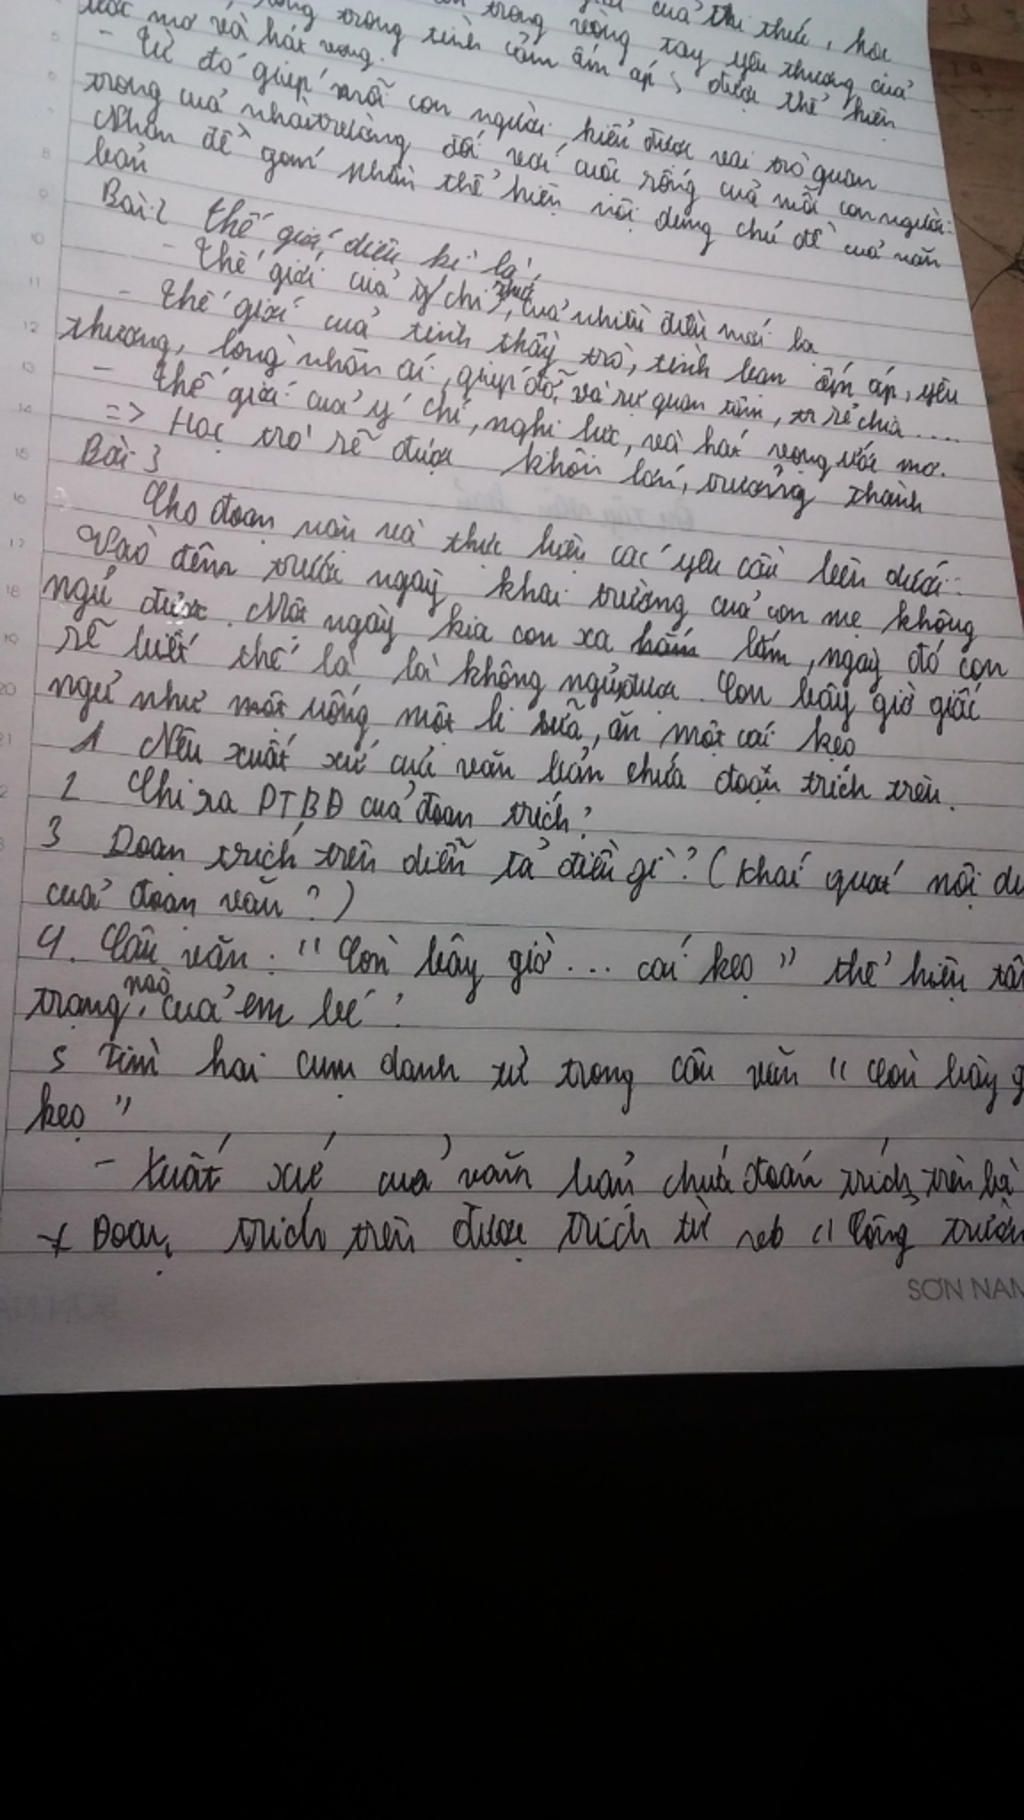 của tri thức, học
trong vòng tay yêu thương của
trong tình cảm ấm áp, được thể hiện
ước mơ và hát vọng.
- Từ đó giúp mỗi con người hiểu được vai trò quan
trong cuả nhà trường đối với cuôc sống cuả mỗi con người.
Nhan đề gom nhắn thể hiện nội dung chủ đề cuả văn
bản
Bài 2 thế giới diệu kì là,
- thế giới cuả chi thức, cuả nhiều điều mới la
- thế giới cuả tình thầy trò, tình ban ấm áp, yêu
thương, long nhân ái, giúp đỡ, và sự quan tâm, sẻ chia....
- thế giới cuả ý chí, nghi lực, và hát vọng ước mơ.
=> Học trò sẽ được khôn lớn, trưởng thành
Bài 3
Cho đoạn văn và thực hiện các yêu cầu bên dưới:
Vào đêm trước ngaỳ khai trường cuả con mẹ không
ngủ được. Một ngày kia con xa lắm, ngaỳ đó con
sẽ biết thế là là không ngủ được. Con bây giờ giấc
ngủ như uống một li sữa, ăn một cái kẹo
1 Nêu xuất xứ cuả văn bản chứa đoạn trích trên.
2 Chỉ ra PTBĐ cuả đoạn trích?
3 Đoạn trích trên diễn tả điều gì? (khái quát nội du
cuả đoạn văn?)
4. Câu văn: " Còn bây giờ ... cái kẹo " thể hiện tâ
trạng nào cuả em bé?
5 tìm hai cụm danh từ trong câu văn " Còn bây g
kẹo "
- Xuất xứ cuả văn bản chứa đoán trích trên là
+ Đoạn trích trên được trích từ vb " Cổng trườn
SƠN NAM